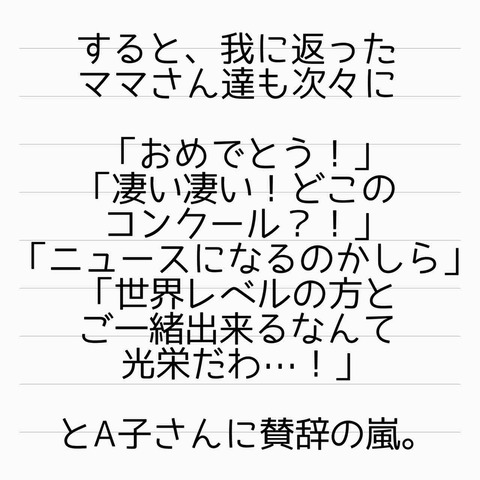 すると、我に返った
ママさん達も次々に
「おめでとう！」
「凄い凄い！どこの
コンクール？！」
「ニュースになるのかしら」
「世界レベルの方と
ご一緒出来るなんて
光栄だわ…！」
とA子さんに賛辞の嵐。